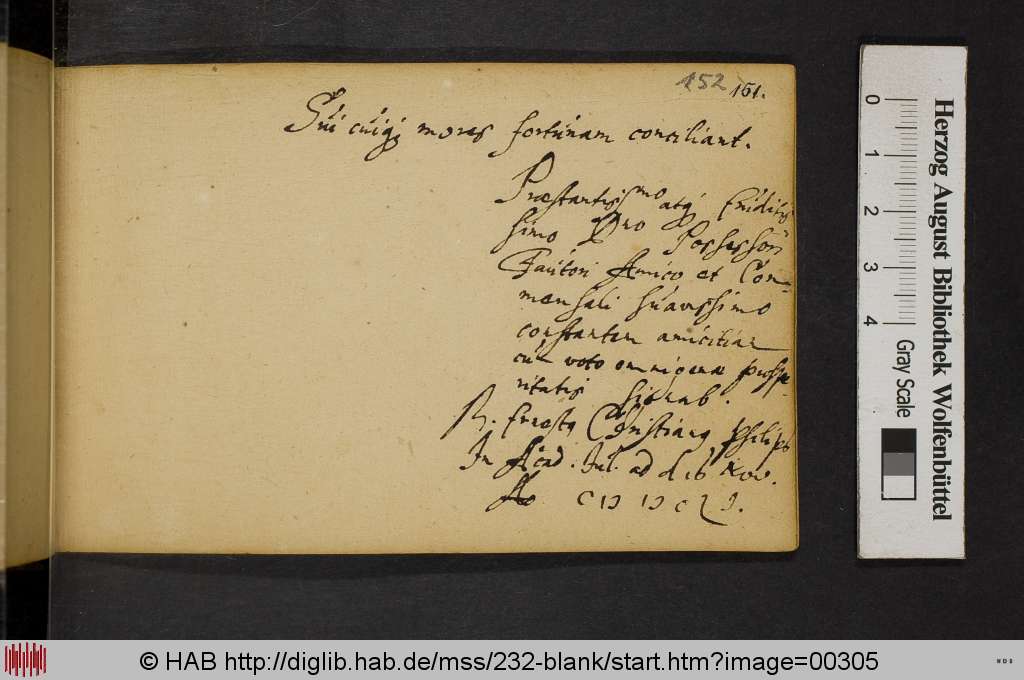 152 161.
Sui cuiq; mores fortunam conciliant.
Præstantissmo atq; Eruditis
simo Dno Possessori
Fautori Amico et Com-
mensali suavissimo
constantem amicitiam
cū voto omnigenæ prospe-
ritatis signab.
M. Ernestq Christianq Philipp
In Acad. Iul. ad d 16 Nov.
Ao
Herzog August Bibliothek Wolfenbüttel
0 1 2 3 4
Gray Scale
© HAB http://diglib.hab.de/mss/232-blank/start.htm?image=00305